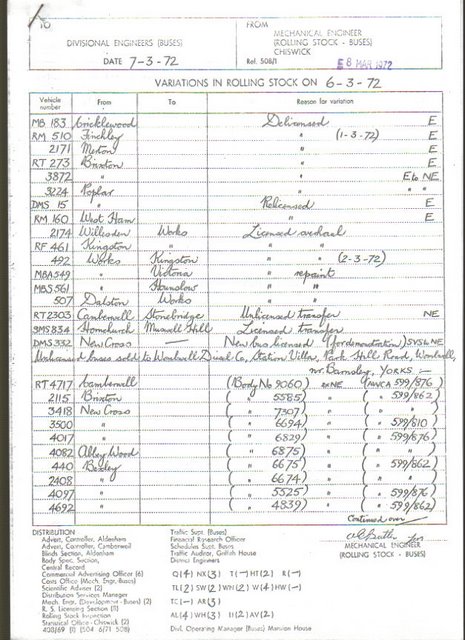 TO
FROM
DIVISIONAL ENGINEERS (BUSES)
MECHANICAL ENGINEER
(ROLLING STOCK - BUSES)
CHISWICK
DATE 7-3-72
Ref. 508/1
E 8 MAR 1972
VARIATIONS IN ROLLING STOCK ON 6-3-72
Vehicle number From To Reason for variation
MB 183 Cricklewood Delicensed E
RM 510 Finchley " (1-3-72) E
2171 Merton " E
RT 273 Brixton " E
3872 " " E to NE
3224 Poplar " " "
DMS 15 " Relicensed E
RM 160 West Ham " E
2174 Willesden Works Licensed overhaul
RF 461 Kingston " " "
492 Works Kingston " " (2-3-72)
MBA549 " Victoria " repaint
MBS 561 " Hounslow " "
507 Dalston Works " "
RT2303 Camberwell Stonebridge Unlicensed transfer NE
SMS834 Hornchurch Muswell Hill Licensed transfer
DMS 332 New Cross — New bus licensed (for demonstration) SVS to NE
Unlicensed buses sold to Wombwell Diesel Co, Station Villa, Park Hill Road, Wombwell,
nr. Barnsley, YORKS :-
RT 4717 Camberwell (Body No 9060) ex NE (AVCA 599/876)
2115 Brixton ( " 5585) " ( " 599/862)
3418 New Cross ( " 7307) " ( " " )
3500 " ( " 6694) " ( " 599/810)
4017 " ( " 6829) " ( " 599/876)
4082 Abbey Wood ( " 6875) " ( " " )
440 Bexley ( " 6675) " ( " 599/862)
2408 " ( " 6674) " ( " " )
4097 " ( " 5525) " ( " 599/876)
4692 " ( " 4839) " ( " 599/862)
Continued over
for
MECHANICAL ENGINEER
(ROLLING STOCK - BUSES)
DISTRIBUTION
Advert. Controller, Aldenham
Advert. Controller, Camberwell
Blinds Section, Aldenham
Body Spec. Section,
Central Record
Commercial Advertising Officer (6)
Costs Office (Mech. Engr. Buses)
Scientific Adviser (2)
Distribution Services Manager
Mech. Engr. (Development - Buses) (2)
R. S. Licensing Section (11)
Rolling Stock Inspection
Statistical Office - Chiswick (2)
Traffic Supt. (Buses)
Financial Research Officer
Schedules Supt. Buses
Traffic Auditor, Griffith House
District Engineers
Q(4) NX(3) T(—) HT(2) R(—)
TL(2) SW(2) WN(2) W(4) HW(—)
TC(—) AR(3)
AL(4) WH(3) U(2) AV(2)
Divl. Operating Manager (Buses) Mansion House